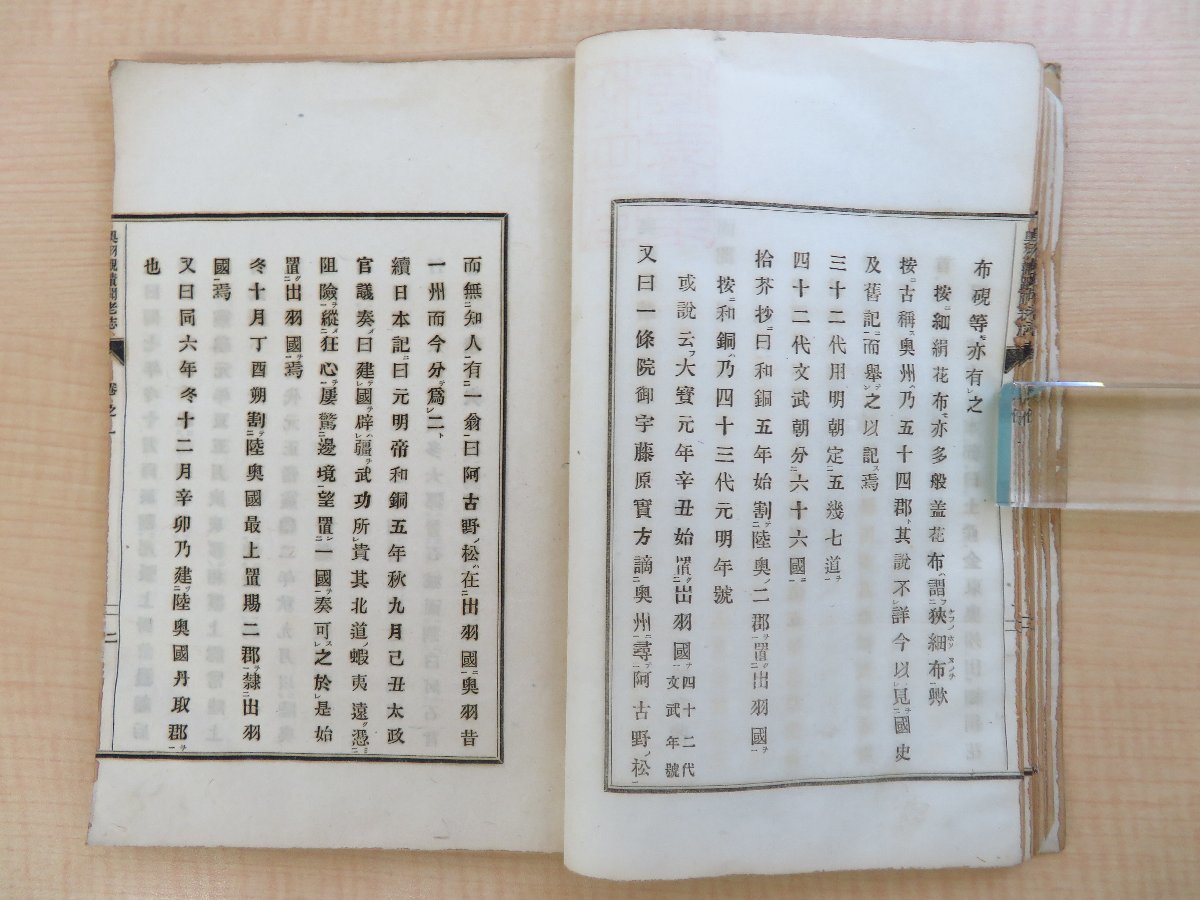 布硯等亦有之
按細絹花布亦多般盖花布謂狹細布歟
按古稱奧州乃五十四郡其說不詳今以見國史
及舊記而舉之以記焉
三十二代用明朝定五幾七道
四十二代文武朝分六十六國
拾芥抄曰和銅五年始割陸奧二郡置出羽國
按和銅乃四十三代元明年號
或說云大寶元年辛丑始置出羽國四十二代文武年號
又曰一條院御宇藤原實方謫奧州尋阿古野松
而無知人有一翁曰阿古野松在出羽國奧羽昔
一州而今分爲二
續日本記曰元明帝和銅五年秋九月己丑太政
官議奏曰建國辟疆武功所貴其北道蝦夷遠憑
阻險縱狂心屢驚邊境望置一國奏可之於是始
置出羽國焉
冬十月丁酉朔割陸奧國最上置賜二郡隸出羽
國焉
又曰同六年冬十二月辛卯乃建陸奧國丹取郡
也
奧羽觀蹟聞老志
卷之一